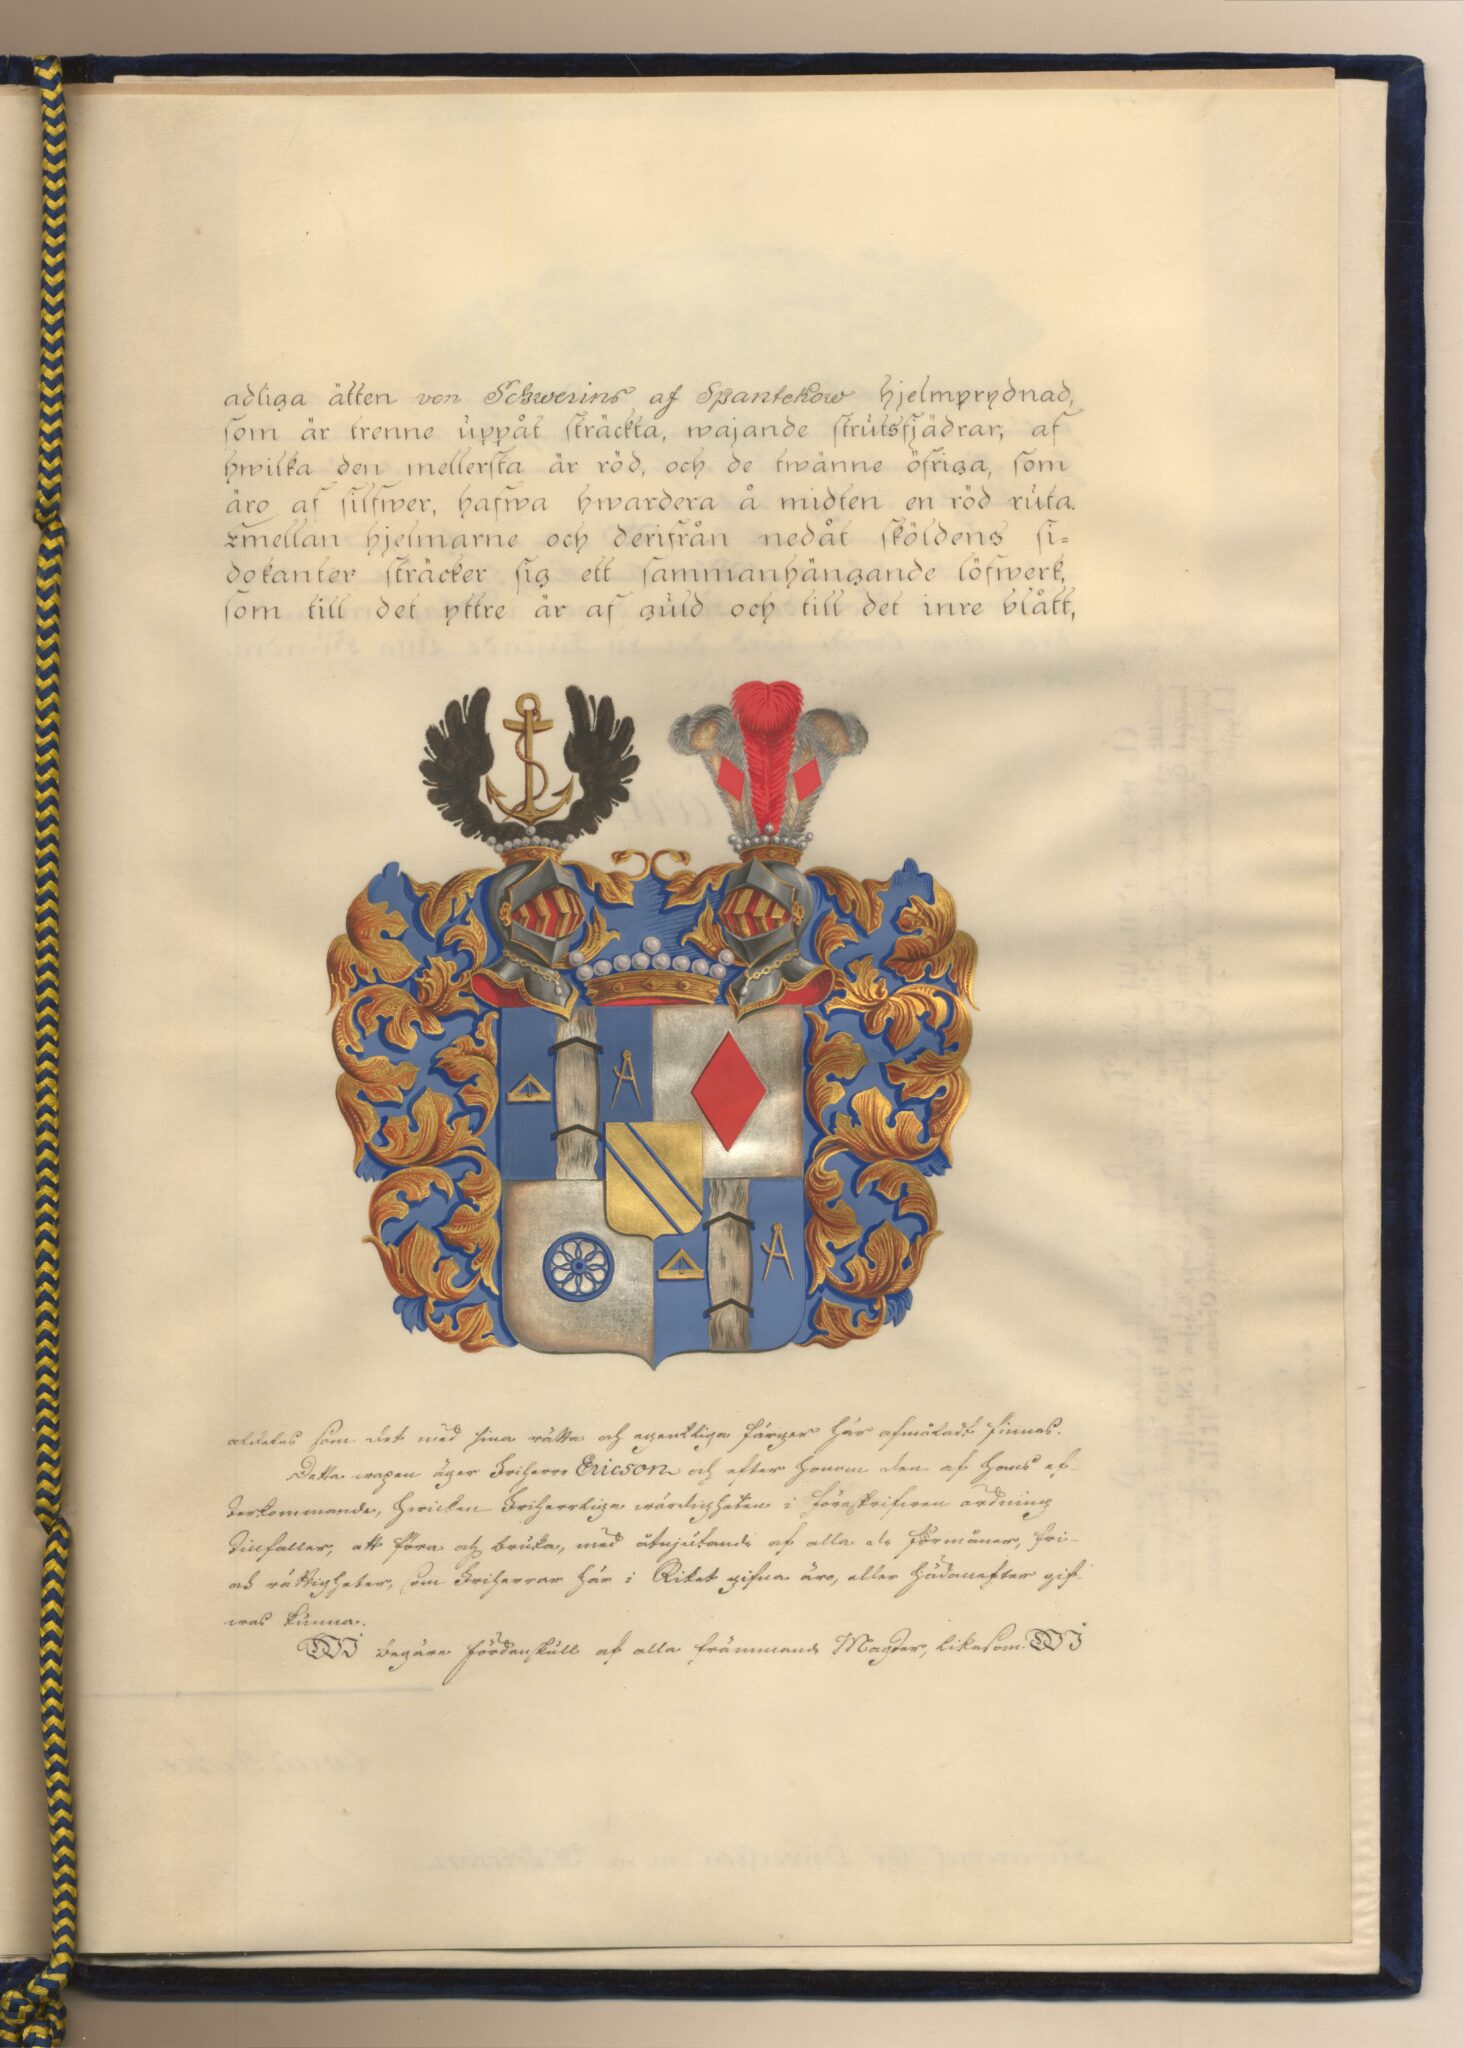 adliga ätten von Schwerins af Spantekow hjelmprydnad,
som är trenne uppåt sträckta, wajande strutsfjädrar, af
hwilka den mellersta är röd, och de twänne öfriga, som
äro af silfwer, hafwa hwardera å midten en röd ruta.
Emellan hjelmarne och derifrån nedåt sköldens si=
dokanter sträcker sig ett sammanhängande löfwerk,
som till det yttre är af guld och till det inre blått,
aldeles som det med sina rätta och egentliga färger här afmåladt finnes.
Detta wapen äger Friherre Ericson och efter honom den af hans ef-
terkommande, hwilken Friherrliga wärdigheten i föreskrifwen ordning
tillfaller, att föra och bruka, med åtnjutande af alla de förmåner, fri-
och rättigheter, som Friherrar här i Riket gifna äro, eller hädanefter gif-
was kunna.
WI begäre fördenskull af alla främmande Magter, likasom WI